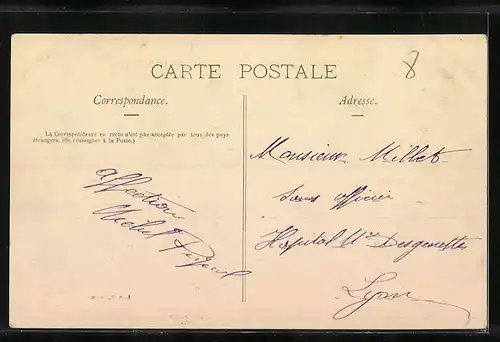 8
CARTE POSTALE
Correspondance.
Adresse.
La Correspondance au recto n'est pas acceptée par tous les pays
étrangers. (Se renseigner à la Poste.)
Affection
Michel
Monsieur Millet
sous officier
Hopital Ure Desgenettes
Lyon